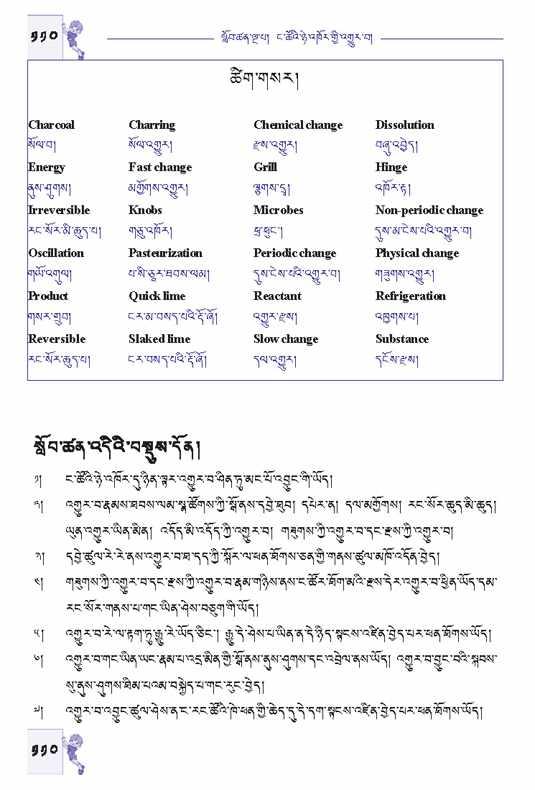 ༡༡༠
སློབ་ཚན་ལྔ་པ། ང་ཚོའི་ཉེ་འཁོར་གྱི་འགྱུར་བ།
ཚིག་གསར།
Charcoal Charring Chemical change Dissolution
སོལ་བ། སོལ་འགྱུར། རྫས་འགྱུར། བཞུ་འབྱེད།
Energy Fast change Grill Hinge
ནུས་ཤུགས། མགྱོགས་འགྱུར། ལྕགས་དྲ། འཁོར་རྟ།
Irreversible Knobs Microbes Non-periodic change
རང་སོར་མི་ཆུད་པ། གཅུ་འཁོར། ཕྲ་ཕུང་། དུས་མ་ངེས་པའི་འགྱུར་བ།
Oscillation Pasteurization Periodic change Physical change
གཡོ་འགུལ། པ་སི་ཅུར་ཐབས་ལམ། དུས་ངེས་པའི་འགྱུར་བ། གཟུགས་འགྱུར།
Product Quick lime Reactant Refrigeration
གསར་གྲུབ། ངར་མ་བསད་པའི་རྡོ་ཞོ། འགྱུར་རྫས། འཁྱགས་པ།
Reversible Slaked lime Slow change Substance
རང་སོར་ཆུད་པ། ངར་བསད་པའི་རྡོ་ཞོ། དལ་འགྱུར། དངོས་རྫས།
སློབ་ཚན་འདིའི་བསྡུས་དོན།
༡། ང་ཚོའི་ཉེ་འཁོར་དུ་ཉིན་ལྟར་འགྱུར་བ་ཤིན་ཏུ་མང་པོ་འབྱུང་གི་ཡོད།
༢། འགྱུར་བ་རྣམས་ཐབས་ལམ་སྣ་ཚོགས་ཀྱི་སྒོ་ནས་དབྱེ་ཐུབ། དཔེར་ན། དལ་མགྱོགས། རང་སོར་ཆུད་མི་ཆུད།
ཡུན་འགྱུར་ཡིན་མིན། འདོད་མི་འདོད་ཀྱི་འགྱུར་བ། གཟུགས་ཀྱི་འགྱུར་བ་དང་རྫས་ཀྱི་འགྱུར་བ།
༣། དབྱེ་ཚུལ་རེ་རེ་ནས་འགྱུར་བ་ཐ་དད་ཀྱི་སྐོར་ལ་ཕན་ཐོགས་ཅན་གྱི་གནས་ཚུལ་མཁོ་འདོན་བྱེད།
༤། གཟུགས་ཀྱི་འགྱུར་བ་དང་རྫས་ཀྱི་འགྱུར་བ་རྣམ་གཉིས་ནས་ང་ཚོར་ཐོག་མའི་རྫས་དེར་འགྱུར་བ་ཕྱིན་ཡོད་དམ་
རང་སོར་གནས་པ་གང་ཡིན་ཤེས་བཅུག་གི་ཡོད།
༥། འགྱུར་བ་རེ་ལ་རྟག་ཏུ་རྒྱུ་རེ་ཡོད་ཅིང་། རྒྱུ་དེ་ཤེས་པ་ཡིན་ན་དེ་ཉིད་སྟངས་འཛིན་བྱེད་པར་ཕན་ཐོགས་ཡོད།
༦། འགྱུར་བ་གང་ཡིན་ཡང་རྣམ་པ་འདྲ་མིན་གྱི་སྒོ་ནས་ནུས་ཤུགས་དང་འབྲེལ་ནས་ཡོད། འགྱུར་བ་བྱུང་བའི་སྐབས་
སུ་ནུས་ཤུགས་ཐིམ་པའམ་བསྐྱེད་པ་གང་རུང་བྱེད།
༧། འགྱུར་བ་འབྱུང་ཚུལ་ཤེས་ན་ང་རང་ཚོའི་ཁེ་ཕན་གྱི་ཆེད་དུ་དེ་དག་སྟངས་འཛིན་བྱེད་པར་ཕན་ཐོགས་ཡོད།
༡༡༠